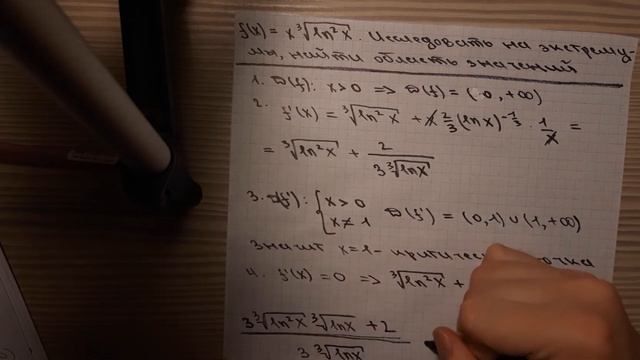 f(x) = x ∛(ln²x). Исследовать на экстрему-
мы, найти область значений
1. D(f): x>0 => D(f) = (0, +∞)
2. f'(x) = ∛(ln²x) + x 2/3 (ln x)^(-1/3) · 1/x =
= ∛(ln²x) + 2/(3∛(ln x))
3. D(f'): { x>0 x≠1 D(f') = (0,1) ∪ (1, +∞)
Значит x=1 -
4. f'(x) = 0 => ∛(ln²x) +
(3∛(ln²x) ∛(ln x) + 2)/(3∛(ln x))